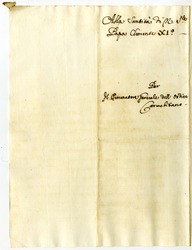 Alla Santità di N. Sre
Papa Clemente XI.o
Per
Il Procurator Generale dell' Ordine
Carmelitano